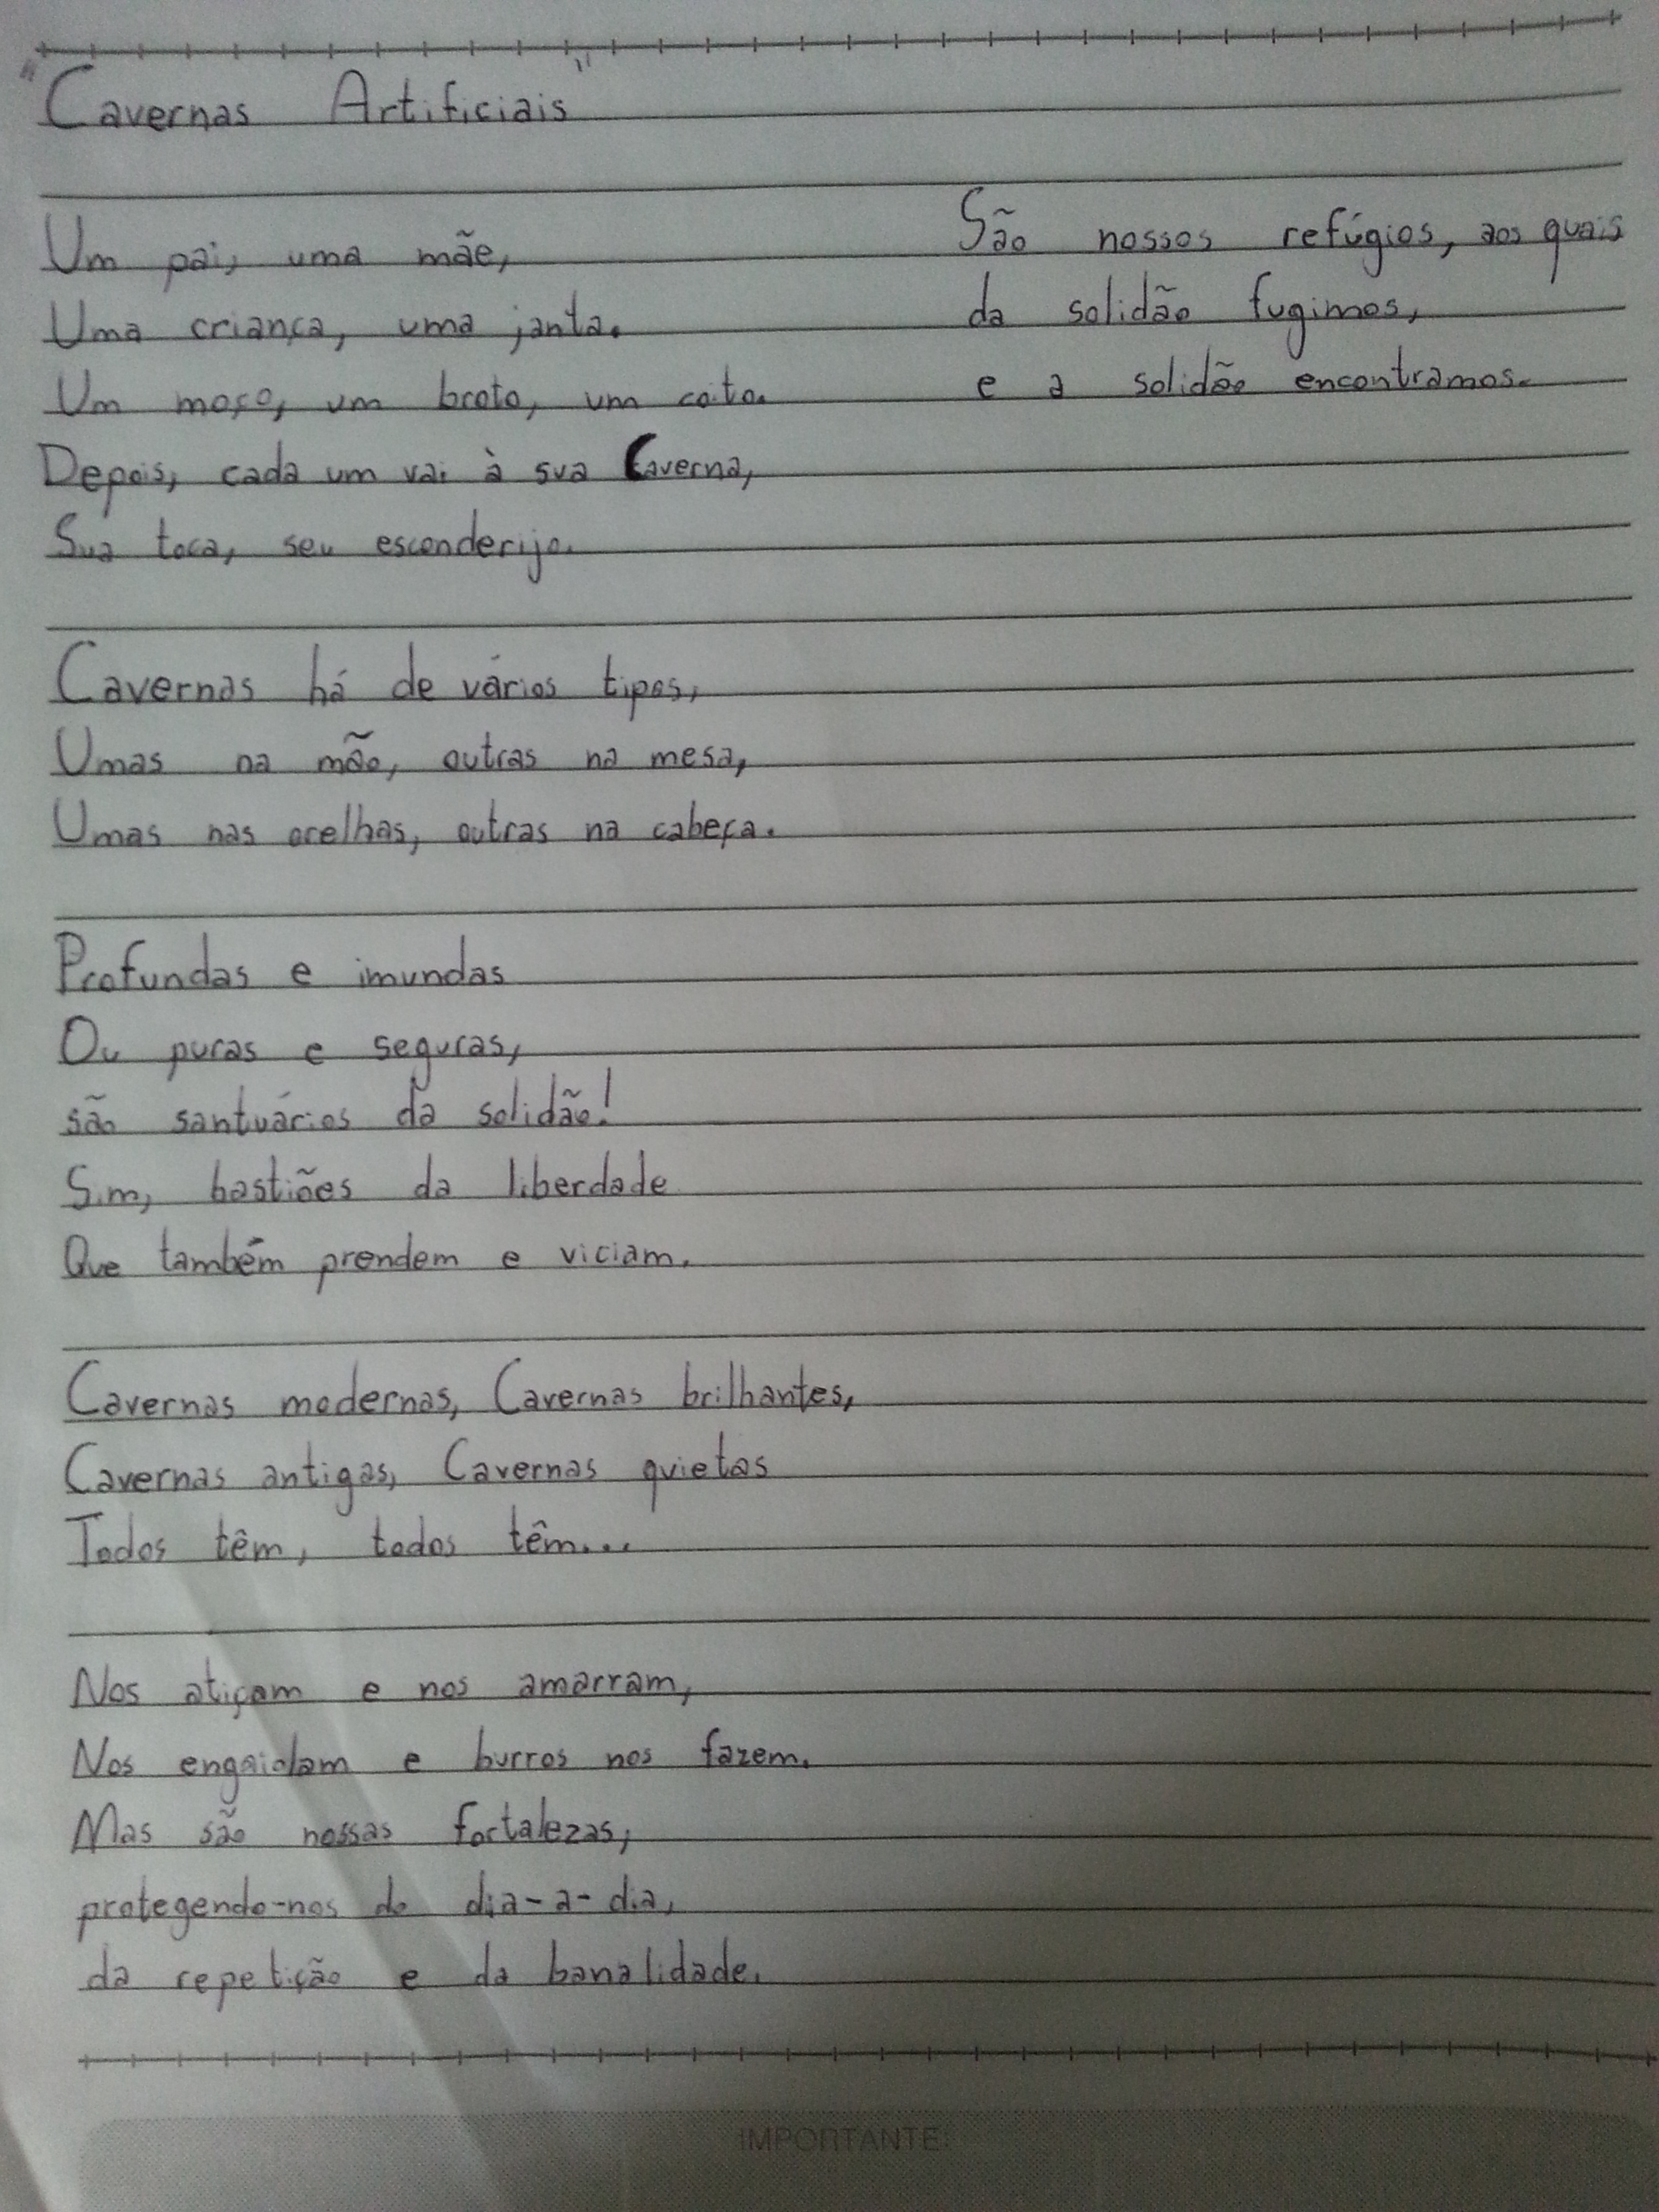 "Cavernas Artificiais"
Um pai, uma mãe,
Uma criança, uma janta.
Um moço, um broto, um coito.
Depois, cada um vai à sua Caverna,
Sua toca, seu esconderijo.
Cavernas há de vários tipos,
Umas na mão, outras na mesa,
Umas nas orelhas, outras na cabeça.
Profundas e imundas
Ou puras e seguras,
são santuários da solidão!
Sim, bastiões da liberdade
Que também prendem e viciam.
Cavernas modernas, Cavernas brilhantes,
Cavernas antigas, Cavernas quietas
Todos têm, todos têm...
Nos atiçam e nos amarram,
Nos engaiolam e burros nos fazem.
Mas são nossas fortalezas,
protegendo-nos do dia-a-dia,
da repetição e da banalidade.
São nossos refúgios, aos quais
da solidão fugimos,
e a solidão encontramos.
IMPORTANTE: